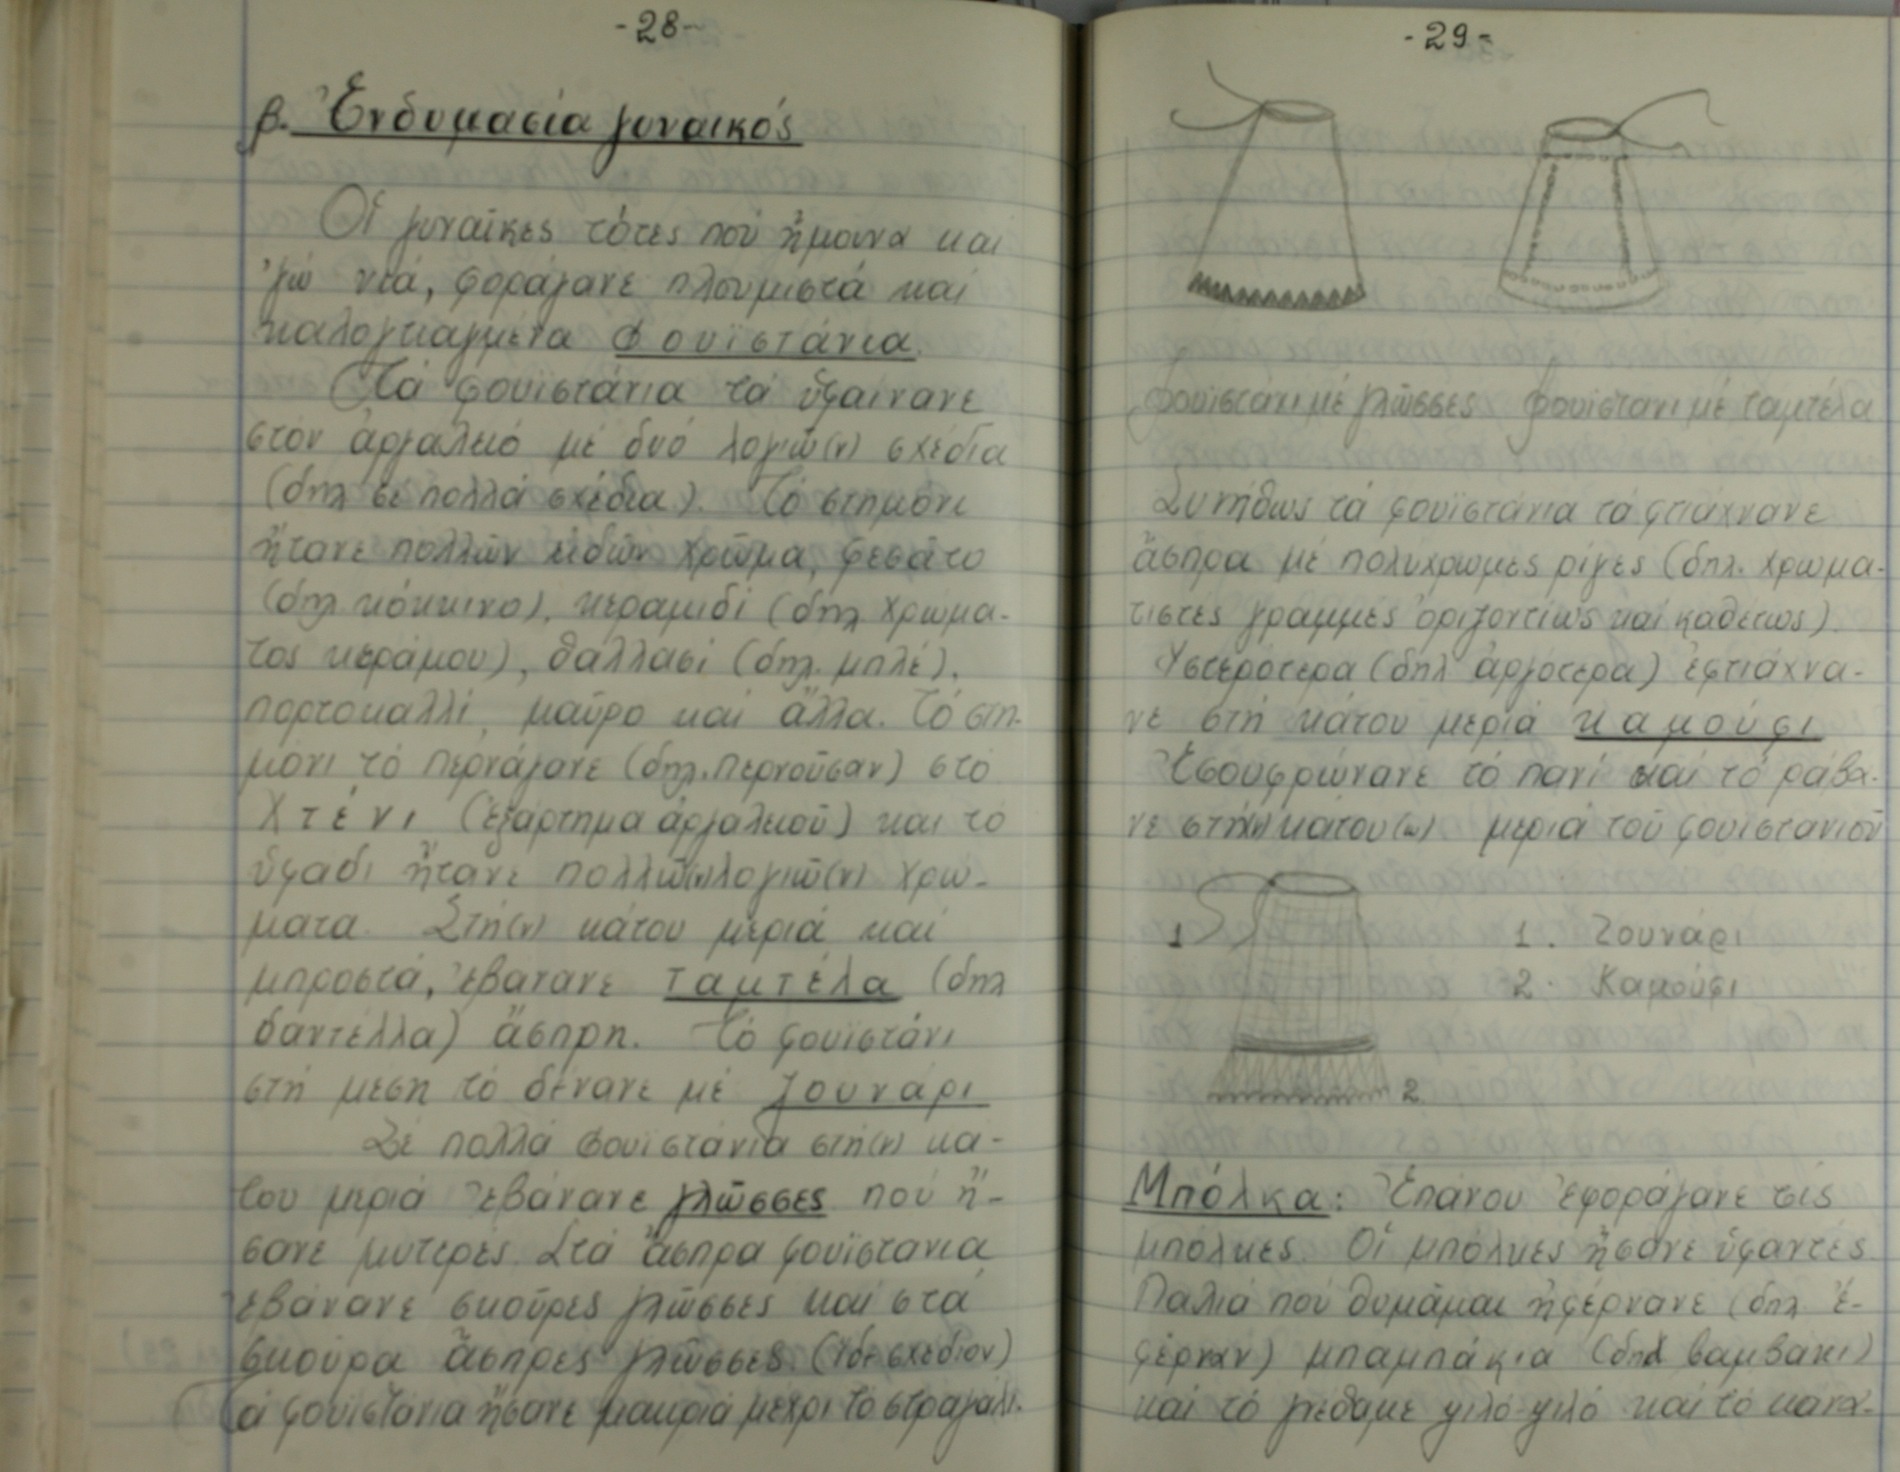 -28-
β. Ἐνδυμασία γυναικός
Οἱ γυναῖκες τότες πού ἤμουνα καί
'γώ νιά, φοράγανε πλουμιστά καί
καλογιαγμένα φουϊστάνια.
Τά φουϊστάνια τά ὕφαινανε
στόν ἀργαλειό μέ δυό λογιῶ(ν) σχέδια
(δηλ σέ πολλά σχέδια). Τό στημόνι
ἤτανε πολλῶν εἰδῶν χρῶμα, φεσάτο
(δηλ κόκκινο), κεραμιδί (δηλ χρώμα-
τος κεράμου), θαλλασί (δηλ. μπλέ),
πορτοκαλλί, μαῦρο καί ἄλλα. Τό στη-
μόνι τό περνάγανε (δηλ. περνοῦσαν) στό
χτένι (ἐξάρτημα ἀργαλειοῦ) καί τό
ὑφάδι ἤτανε πολλῶ(ν)λογιῶ(ν) χρώ-
ματα. Στή(ν) κάτου μεριά καί
μπροστά, ἐβάνανε ταμτέλα (δηλ
δαντέλλα) ἄσπρη. Τό φουϊστάνι
στή μέση τό δένανε μέ ζουνάρι
Σέ πολλά φουϊστάνια στή(ν) κά-
του μεριά ἐβάνανε γλῶσσες πού ἤ-
σανε μυτερές. Στά ἄσπρα φουϊστάνια
ἐβάνανε σκοῦρες γλῶσσες καί στά
σκοῦρα ἄσπρες γλῶσσες. (ἰδέ σχέδιον)
Τά φουϊστάνια ἤσανε μακριά μέχρι τό στραγάλι.
-29-
φουϊστάνι μέ γλῶσσες φουϊστάνι μέ ταμτέλα
Συνήθως τά φουϊστάνια τά φτιάχνανε
ἄσπρα μέ πολύχρωμες ρίγες (δηλ. χρωμα-
τιστές γραμμές ὁριζοντίως καί καθέτως).
Ὑστερότερα (δηλ ἀργότερα) ἐφτιάχνα-
νε στή κάτου μεριά καμούφι
Ἐσουφρώνανε τό πανί καί τό ράβα-
νε στή(ν) κάτου(ω) μεριά τοῦ φουιστανιοῦ
1
1. Ζουνάρι
2. Καμούφι
2.
Μπόλκα: Ἐπάνου ἐφοράγανε τίς
μπόλκες. Οἱ μπόλκες ἤσανε ὑφαντές
Παλιά πού θυμᾶμαι ἠφέρνανε (δηλ. ἔ-
φέρναν) μπαμπάκια (δηλ βαμβάκι)
καί τό γνέθαμε ψιλό-ψιλό καί τό κάνα-